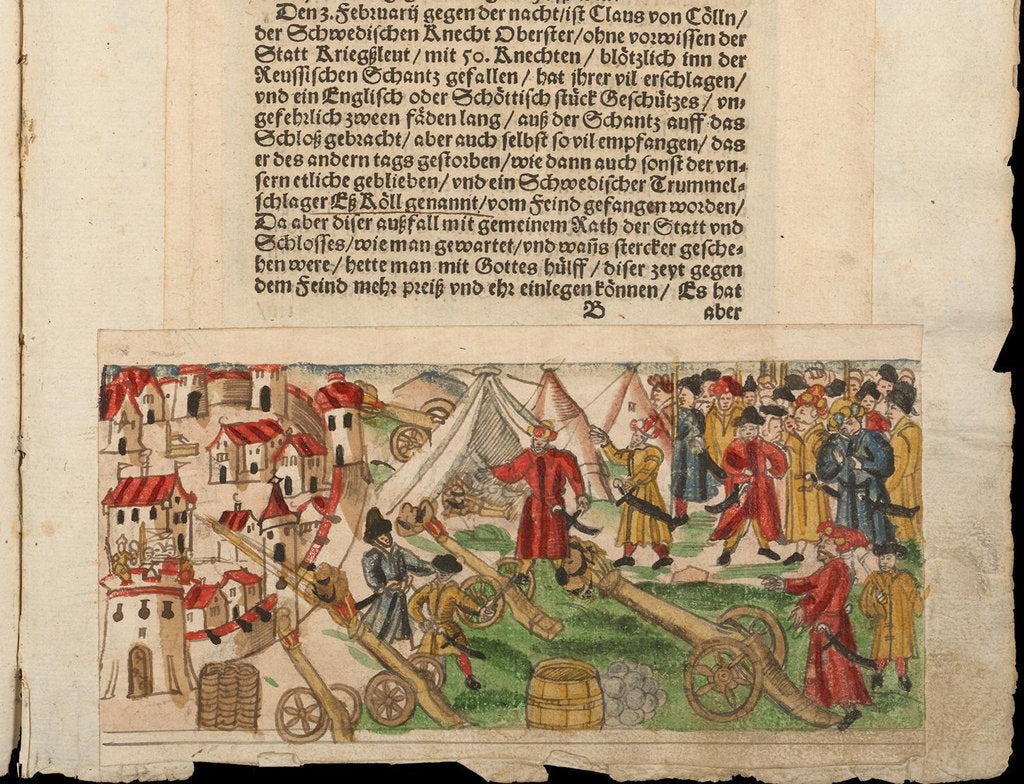 Den 3. Februarij gegen der nacht/ ist Claus von Cölln/
der Schwedischen Knecht Oberster/ ohne vorwissen der
Statt Kriegßleut/ mit 50. Knechten/ blötzlich inn der
Reussischen Schantz gefallen/ hat jhrer vil erschlagen/
vnd ein Englisch oder Schöttisch stück Geschützes/ vn⸗
gefehrlich zween fäden lang/ auß der Schantz auff das
Schloß gebracht/ aber auch selbst so vil empfangen/ das
er des andern tags gestorben/ wie dann auch sonst der vn⸗
sern etliche geblieben/ vnd ein Schwedischer Trummel⸗
schlager Eß Köll genannt/ vom Feind gefangen worden/
Da aber diser außfall mit gemeinem Rath der Statt vnd
Schlosses/ wie man gewartet/ vnd wañs stercker gesche⸗
hen were/ hette man mit Gottes hülff/ diser zeyt gegen
dem Feind mehr preiß vnd ehr einlegen können/ Es hat
B aber